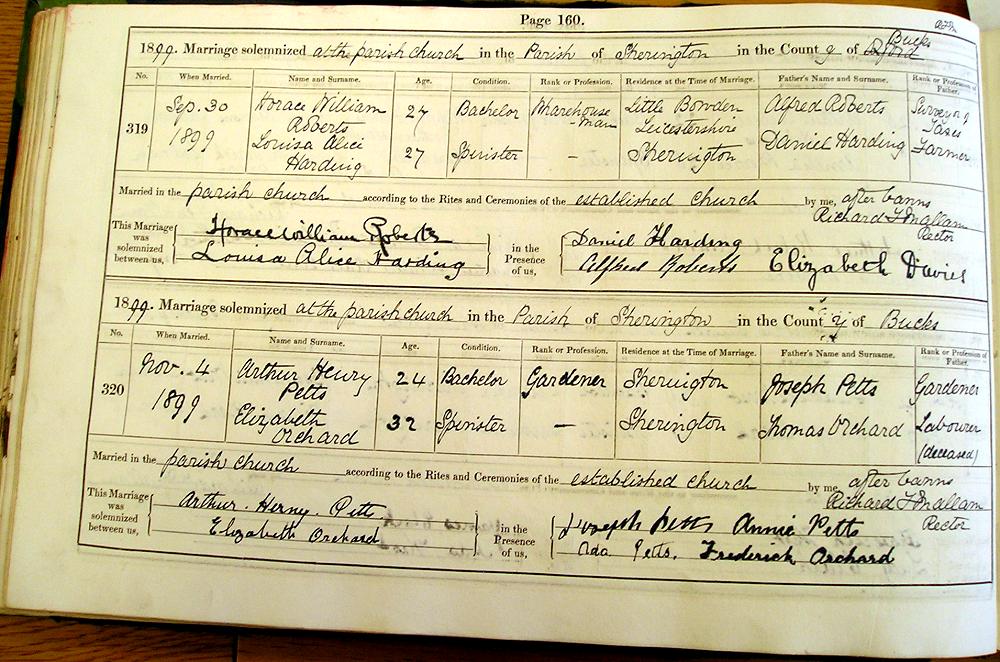 Page 160.
Bucks
1899. Marriage solemnized at the parish church in the Parish of Sherington in the County of Oxford
No. When Married. Name and Surname. Age. Condition. Rank or Profession. Residence at the Time of Marriage. Father's Name and Surname. Rank or Profession of Father.
319
Sep. 30
1899
Horace William
Roberts
27 Bachelor Warehouse
man
Little Bowden
Leicestershire
Alfred Roberts
Surveyor of
Taxes
Louisa Alice
Harding
27 Spinster – Sherington Daniel Harding Farmer
Married in the parish church according to the Rites and Ceremonies of the established church by me, after banns
Richard
Rector
This Marriage
was
solemnized
between us,
Horace William Roberts
Louisa Alice Harding
in the
Presence
of us,
Daniel Harding
Alfred Roberts Elizabeth Davies
1899. Marriage solemnized at the parish church in the Parish of Sherington in the County of Bucks
No. When Married. Name and Surname. Age. Condition. Rank or Profession. Residence at the Time of Marriage. Father's Name and Surname. Rank or Profession of Father.
320
Nov. 4
1899
Arthur Henry
Petts
24 Bachelor Gardener Sherington Joseph Petts Gardener
Elizabeth
Orchard
32 Spinster – Sherington Thomas Orchard Labourer
(deceased)
Married in the parish church according to the Rites and Ceremonies of the established church by me, after banns
Richard
Rector
This Marriage
was
solemnized
between us,
Arthur. Herny. Petts
Elizabeth Orchard
in the
Presence
of us,
Joseph Petts Annie Petts
Ada Petts. Frederick Orchard